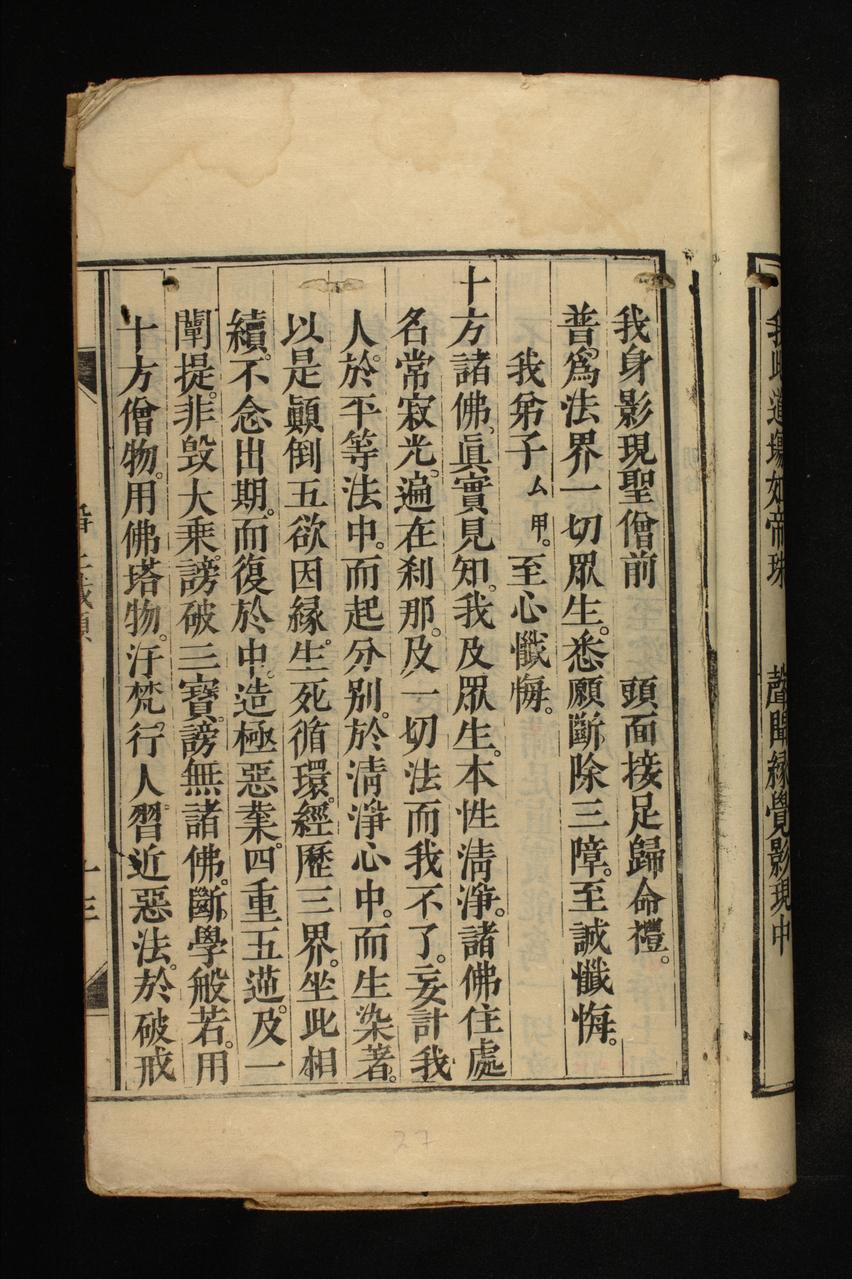 我此道場如帝珠　聲聞緣覺影現中
我身影現聖僧前　頭面接足歸命禮。
普爲法界一切眾生。悉願斷除三障。至誠懺悔。
我弟子ム甲。至心懺悔。
十方諸佛。眞實見知。我及眾生。本性淸淨。諸佛住處
名常寂光。遍在刹那。及一切法而我不了。妄計我
人。於平等法中。而起分別。於淸淨心中。而生染著。
以是顚倒五欲因緣。生死循環。經歷三界。坐此相
續。不念出期。而復於中。造極惡業。四重五逆。及一
闡提。非毁大乘。謗破三寶。謗無諸佛。斷學般若。用
十方僧物。用佛塔物。汙梵。行人。習近惡法。於破戒
十三
27